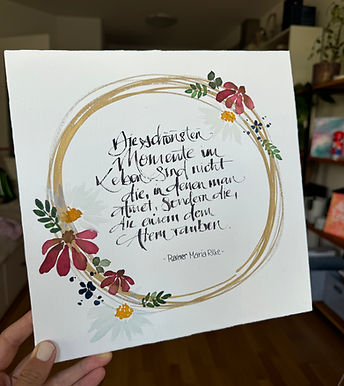 Die schönsten
Momente im
Leben sind nicht
die, in denen man
atmet, sondern die,
die einem den
Atem rauben.
- Rainer Maria Rilke -